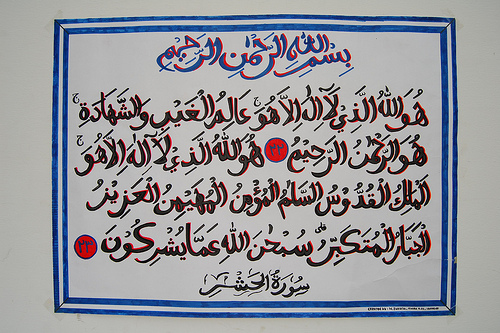 بِسْمِ اللهِ الرَّحْمٰنِ الرَّحِيْمِ
هُوَ اللهُ الَّذِيْ لَآ اِلٰهَ اِلَّا هُوَ ۚ عَالِمُ الْغَيْبِ وَالشَّهَادَةِ ۚ
هُوَ الرَّحْمٰنُ الرَّحِيْمُ ٢٢ هُوَ اللهُ الَّذِيْ لَآ اِلٰهَ اِلَّا هُوَ ۚ
اَلْمَلِكُ الْقُدُّوْسُ السَّلَامُ الْمُؤْمِنُ الْمُهَيْمِنُ الْعَزِيْزُ
الْجَبَّارُ الْمُتَكَبِّرُ ۗ سُبْحٰنَ اللهِ عَمَّا يُشْرِكُوْنَ ٢٣
سُوْرَةُ الْحَشْرِ